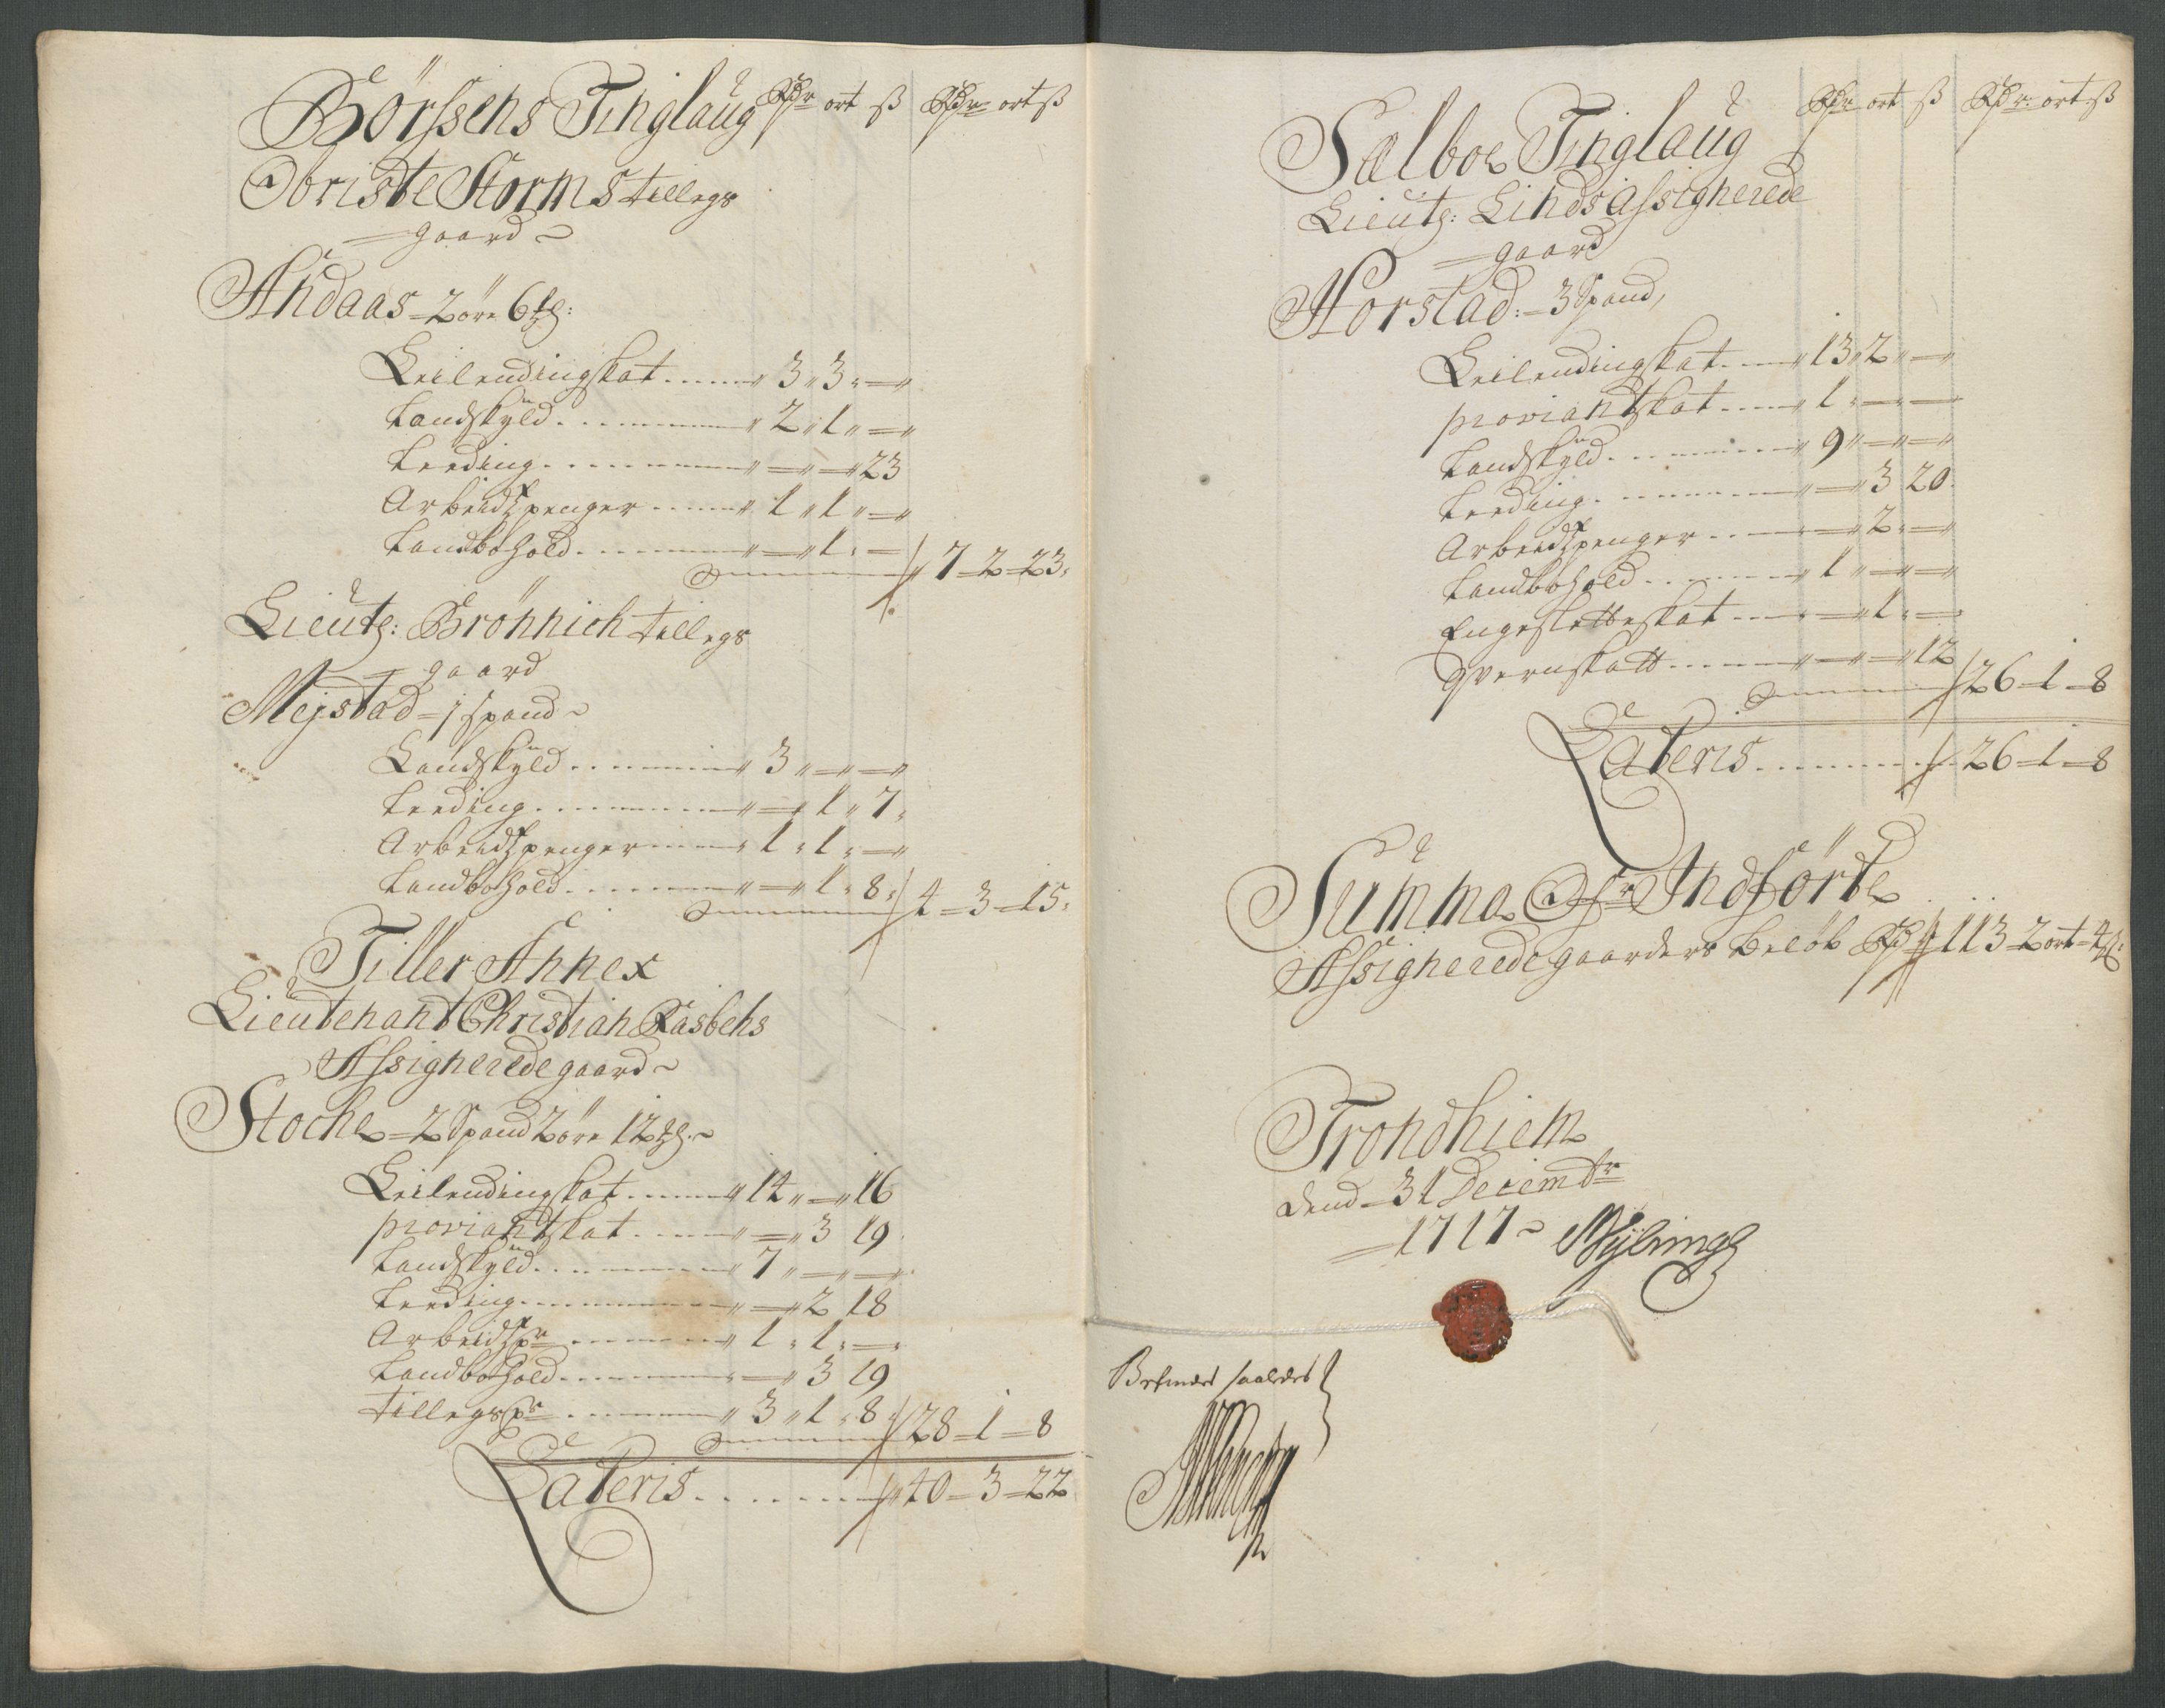 Börssens Tinglaug Rdr ort ß Rdr ort ß
Obriste Storms tillegs
gaard
Andaas 2 öre 6
Leilendingskat 3 3
Landskyld 2 1
Leeding 23
Arbeidspenger 1 1
Landbohold 1
7 2 23
Lieutn: Brönnich tillegs
gaard
Mejstad 1 spand
Landskyld 3
Leeding 1 7
Arbeidspenger 1 1
Landbohold 1 8
4 3 15
Tiller Annex
Lieutenant Christian Rasbehs
Assignerede gaard
Stoche 2 Spand 2 öre 12
Leilendingskat 14 16
proviantskat 3 19
Landskyld 7
Leeding 2 18
Arbeidspr 1 1
Landbohold 3 19
tillegspr 3 1 8
28 1 8
Lateris 40 3 22
Sælboe Tinglaug Rdr ort ß Rdr ort ß
Lieutn: Linds Assignerede
gaard
Horstad: 3 Spand,
Leilendingskat 13 2
proviantskat 1
Landskyld 9
Leeding 3 20
Arbeidspenger 2
Landbohold 1
Engesletteskat 1
Qvernskatt 12
26 1 8
Lateris 26 1 8
Summa Ofr Indförte
Assignerede gaarders Beløb Rdr 113 2 ort 4 ß
Trondhiem
dend 31 Decembr
1717
Befindes saaledes